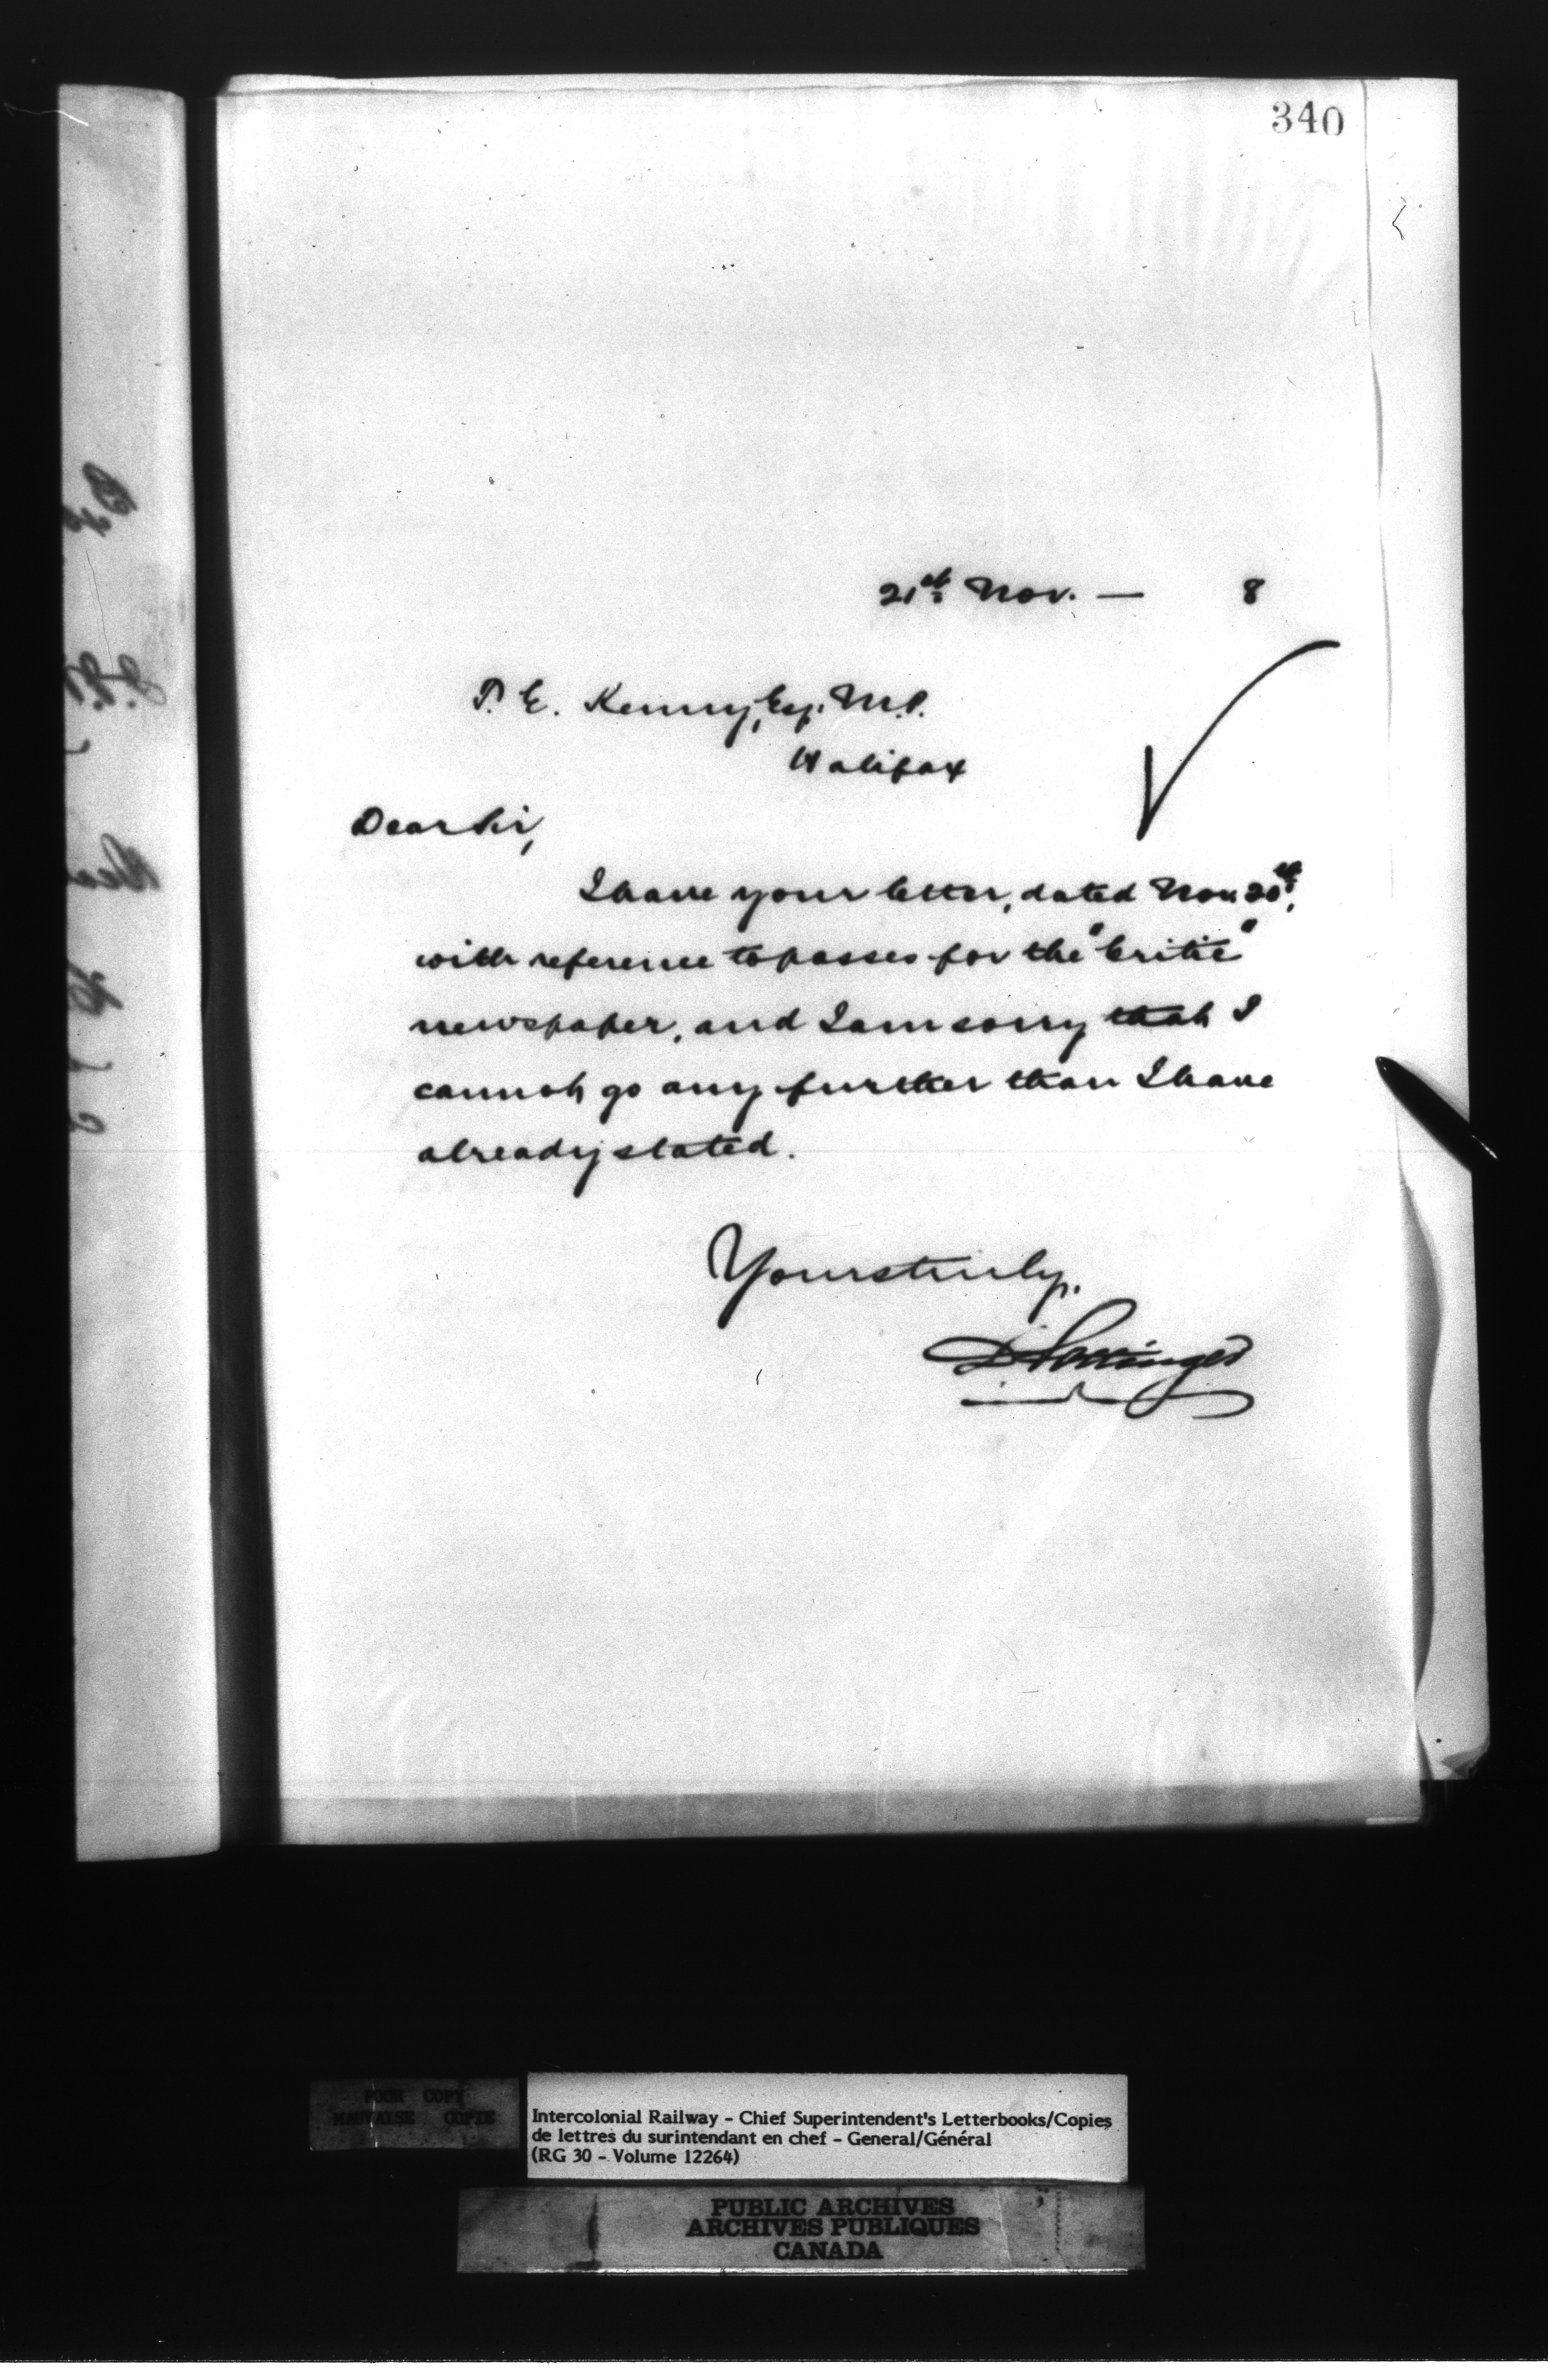 340
21st Nov. — 8
T. E. Kenny, Esq. M.P.
Halifax
Dear Sir,
I have your letter, dated Nov. 20th,
with reference to passes for the "Critic"
newspaper, and I am sorry that I
cannot go any further than I have
already stated.
Yours truly,
D Pottinger
POOR COPY
MAUVAISE COPIE
Intercolonial Railway - Chief Superintendent's Letterbooks/Copies
de lettres du surintendant en chef - General/Général
(RG 30 - Volume 12264)
PUBLIC ARCHIVES
ARCHIVES PUBLIQUES
CANADA